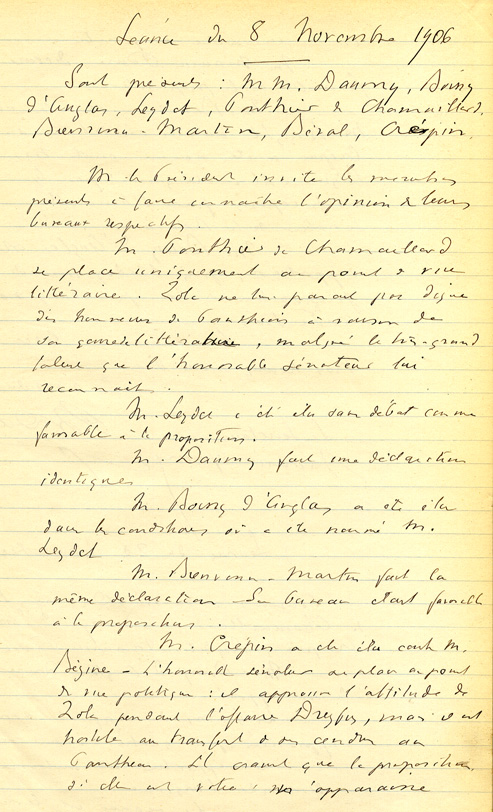 Séance du 8 Novembre 1906
Sont présents : MM. Daumy, Boissy
d'Anglas, Leydet, Ponthier de Chamaillard,
Bienvenu-Martin, Béral, Crépin.
M. le Président invite les membres
présents à faire connaître l'opinion de leurs
bureaux respectifs.
M. Ponthier de Chamaillard
se place uniquement au point de vue
littéraire. Zola ne lui paraît pas digne
des honneurs du Panthéon à raison de
son genre littéraire, malgré le très grand
talent que l'honorable sénateur lui
reconnaît.
M. Leydet a été élu sans débat comme
favorable à la proposition.
M. Daumy fait une déclaration
identique
M. Boissy d'Anglas a été élu
dans les conditions où a été nommé M.
Leydet
M. Bienvenu-Martin fait la
même déclaration - Son bureau était favorable
à la proposition.
M. Crépin a été élu contre M.
Bézine - L'honorable sénateur se place au point
de vue politique : il approuve l'attitude de
Zola pendant l'affaire Dreyfus, mais il est
hostile au transfert de ses cendres au
Panthéon. Il craint que la proposition,
si elle est votée, n'apparaisse